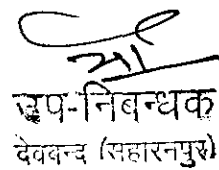 उप-निबन्धक
देवबन्द (सहारनपुर)